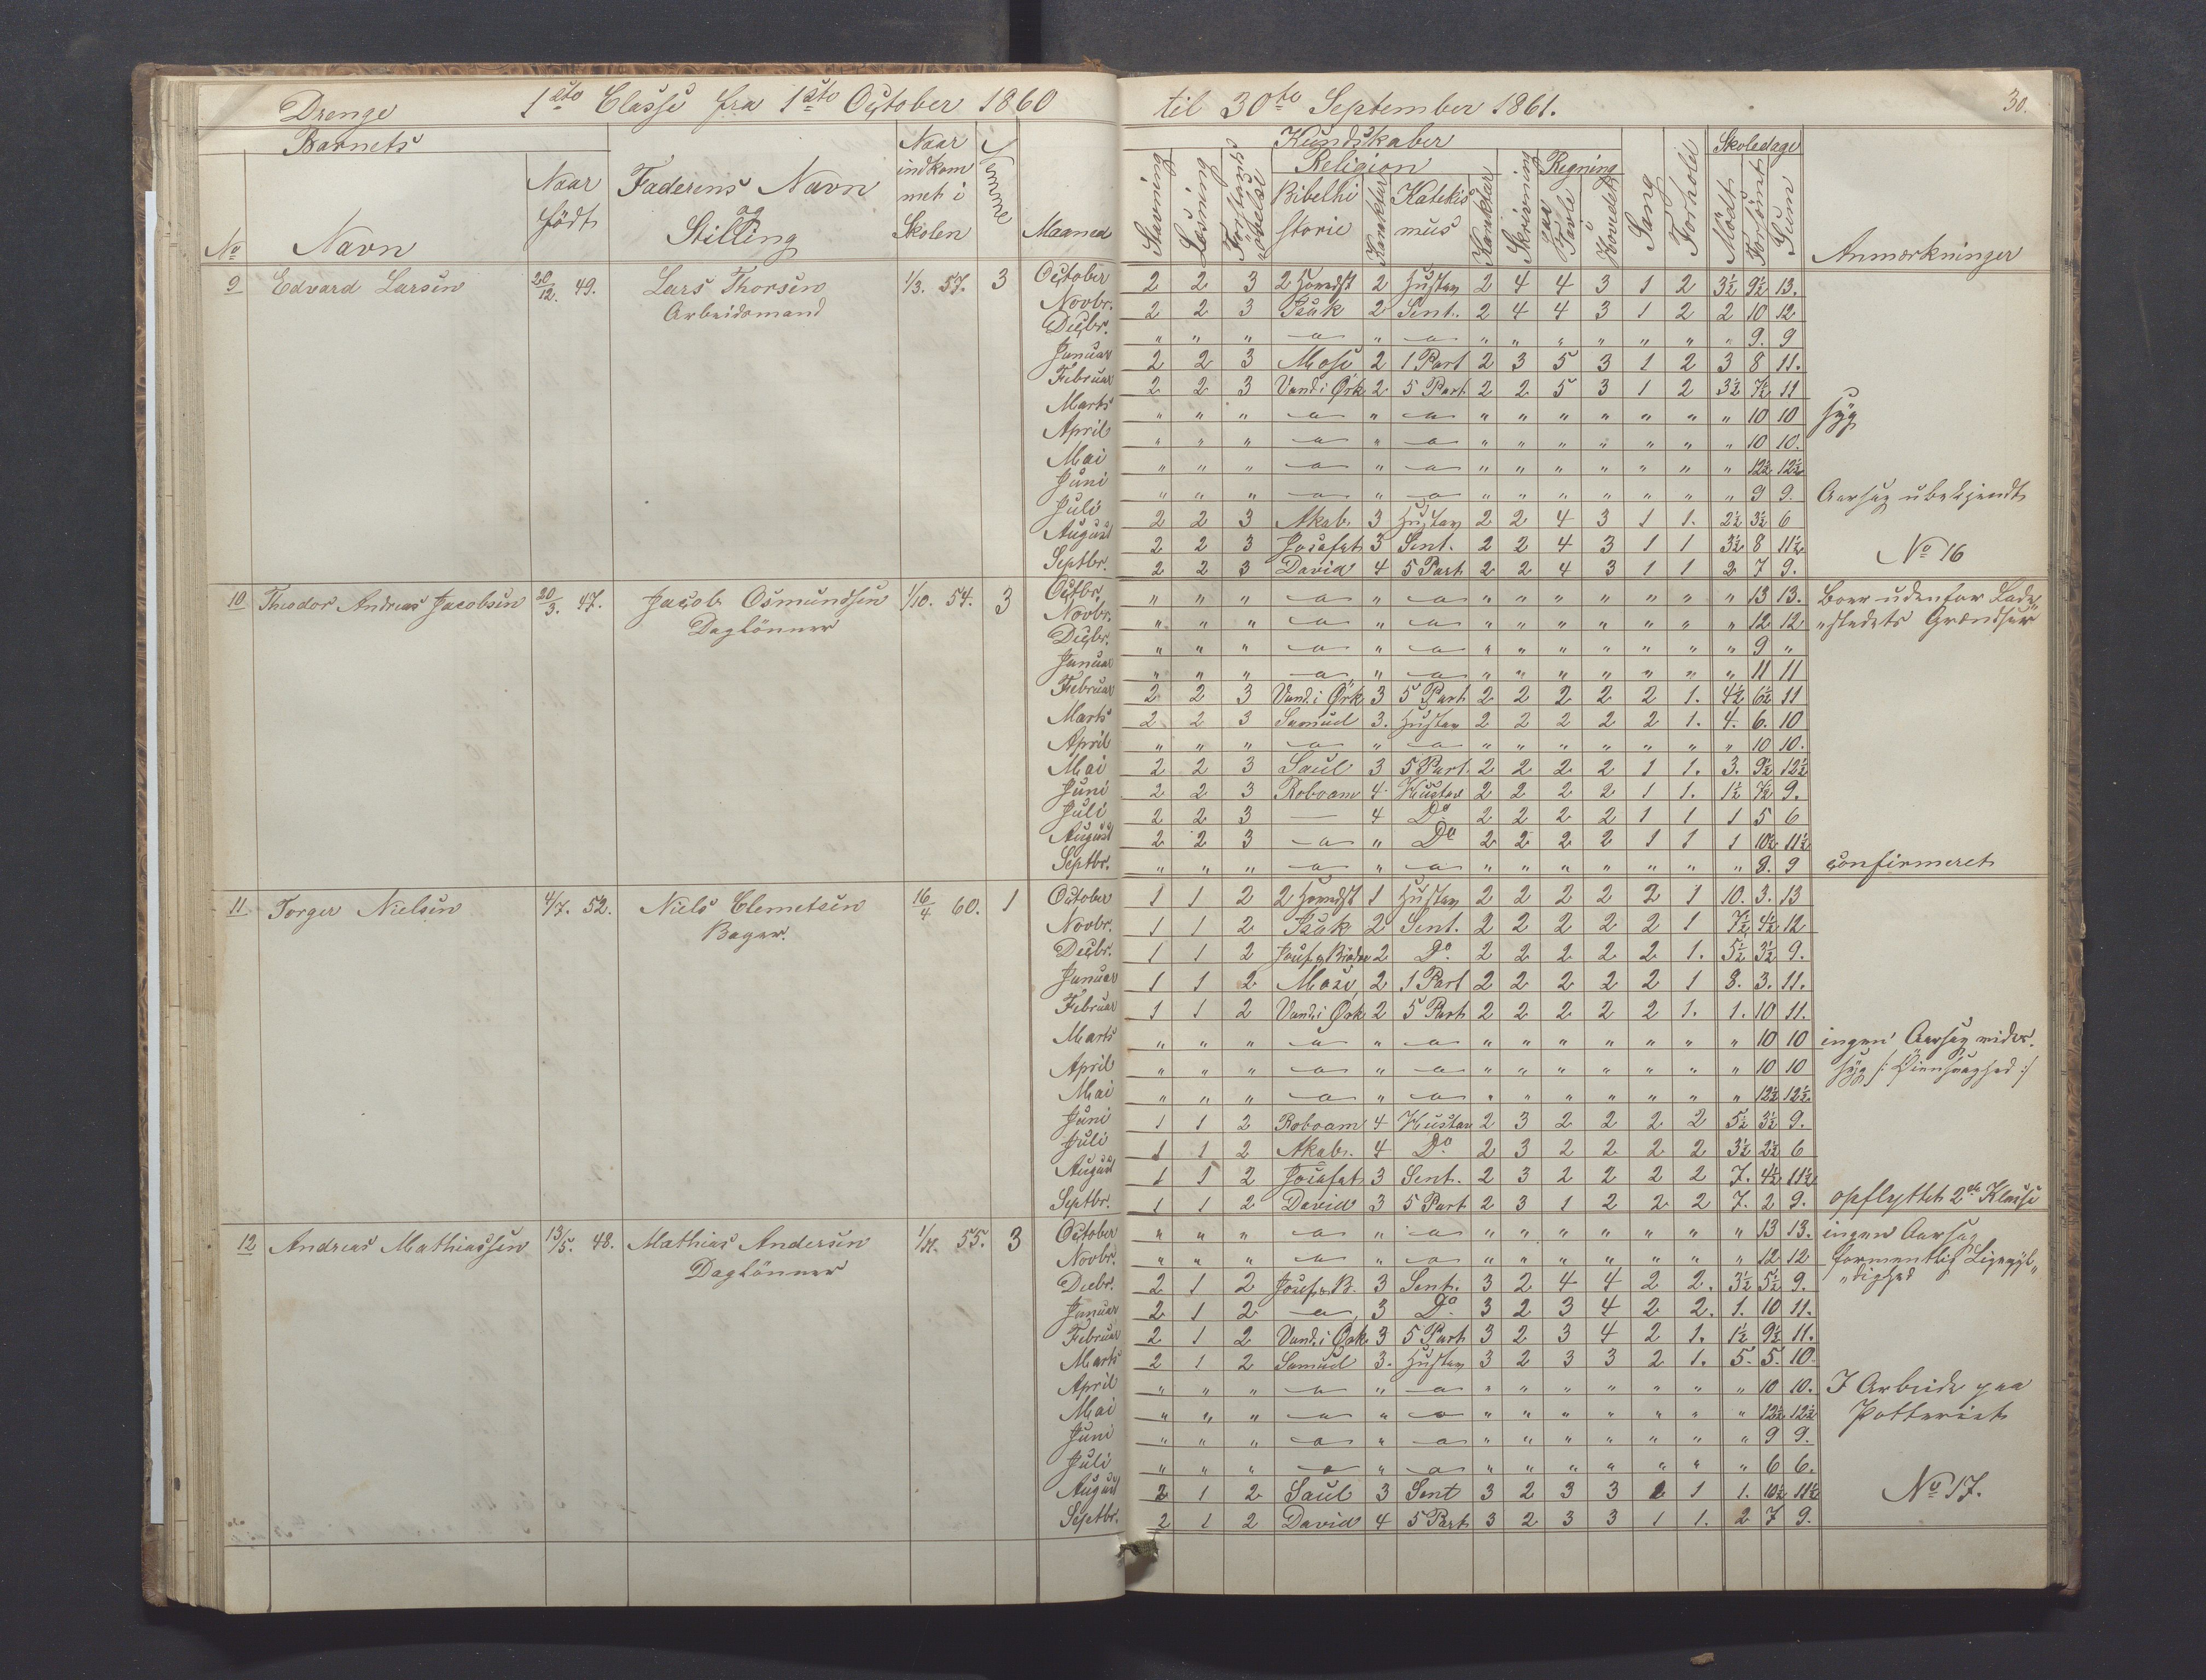 Drenge 1ste Classe fra 1ste October 1860 til 30te September 1861. 30.
Barnets Naar indkommet i Skolen Nemme Maaned Kundskaber Skoledage Anmærkninger
No Navn Naar födt Faderens Navn og Stilling Stavning Læsning Forstands övelse Religion Bibelhistorie Karakter Katekismus Karakter Skrivning Regning paa Tavle Hovedet Sang Forhold Mödt Forsömt Sum
9 Edvard Larsen 20/12. 49. Lars Thorsen 1/3. 57. 3 October 2 2 3 2 Hovedst 2 Hustav 2 4 4 3 1 2 3½ 9½ 13.
Arbeidsmand Novbr. 2 2 3 Isak 2 Sent. 2 4 4 3 1 2 2 10 12
Decbr. " " " " " " " " " " " " 9. 9
Januar 2 2 3 Mose 2 1 Part 2 3 5 3 1 2 3 8 11.
Februar 2 2 3 Vand. i Ørk 2 5 Part 2 2 5 3 1 2 3½ 7½ 11
Marts " " " " " " " " " " " " 10 10 syg
April " " " " " " " " " " " " 10 10.
Mai " " " " " " " " " " " " 12½ 12½
Juni " " " " " " " " " " " " 9 9. Aarsag ubekjendt
Juli 2 2 3 Akab. 3 Hustav 2 2 4 3 1 1. 2½ 3½ 6
August 2 2 3 Josafat 3 Sent. 2 2 4 3 1 1 3½ 8 11½ No 16
Septbr. 2 2 3 David 4 5 Part 2 2 4 3 1 1 2 7 9.
10 Theodor Andreas Jacobsen 20/3. 47. Jacob Osmundsen 1/10. 54. 3 Octbr. " " " " " " " " " " " " 13 13. Boer udenfor Lade
Daglönner Novbr. " " " " " " " " " " " " 12 12 "stedets Grændser
Decbr. " " " " " " " " " " " " 9 "
Januar " " " " " " " " " " " " 11 11
Februar 2 2 3 Vand. i Ørk 3 5 Part 2 2 2 2 2 1. 4½ 6½ 11
Marts 2 2 3 Samuel 3. Hustav 2 2 2 2 2 1. 4. 6. 10
April " " " " " " " " " " " " 10 10.
Mai 2 2 3 Saul 3 5 Part. 2 2 2 2 1 1. 3. 9½ 12½
Juni 2 2 3 Roboam 4. Hustav 2 2 2 2 1 1. 1½ 7½ 9.
Juli 2 2 3 — 4 Do 2 2 2 2 1 1 1 5 6
August 2 2 3 " Do 2 2 2 2 1 1 1 10½ 11½
Septbr. " " " " " " " " " " " " 9. 9 confirmeret
11 Torger Nielsen 4/7. 52. Niels Clemetsen 16/4 60. 1 October 1 1 2 2 Hovedst 1 Hustav 2 2 2 2 2 1 10. 3. 13
Bager. Novbr. 1 1 2 Isak 2 Sent. 2 2 2 2 2 1 7½ 4½ 12
Decbr. 1 1 2 Josef, Brödre 2 Do 2 2 2 2 2 1. 5½ 3½ 9.
Januar 1 1 2 Mose 2 1 Part 2 2 2 2 2 1 8. 3. 11.
Februar 1 1 2 Vand. i Ørk 2 5 Part 2 2 2 2 2 1. 1. 10 11.
Marts " " " " " " " " " " " " 10 10 ingen Aarsag vides.
April " " " " " " " " " " " " 10 10 syg /: Öiensvaghed :/
Mai " " " " " " " " " " " " 12½ 12½.
Juni 1 1 2 Roboam 4 Hustav 2 3 2 2 2 2 5½ 3½ 9.
Juli 1 1 2 Akab. 4 Do 2 3 2 2 2 2 3½ 2½ 6
August 1 1 2 Josafat 3 Sent. 2 3 2 2 2 2 7. 4½ 11½
Septbr. 1 1 2 David 3 5 Part 2 3 1 2 2 2 7. 2 9. opflyttet 2den Klasse
12 Andreas Mathiassen 13/5. 48. Mathias Andersen 55. 3 October " " " " " " " " " " " " 13 13. ingen Aarsag
Daglönner Novbr. " " " " " " " " " " " " 12 12 formentlig Ligegyl"
Decbr. 2 1 2 Josef, B. 3 Sent. 3 2 4 4 2 2. 3½ 5½ 9. "dighed
Januar 2 1 2 3 Do 3 2 3 4 2 2. 1. 10 11.
Februar 2 1 2 Vand. i Ørk 3 5 Part 3 2 3 4 2 1. 1½ 9½ 11.
Marts 2 1 2 Samuel 3. Hustav 3 2 3 3 2 1. 5. 5. 10.
April " " " " " " " " " " " " 10 10. I Arbeide paa
Mai " " " " " " " " " " " " 12½ 12½ Potteriet
Juni " " " " " " " " " " " " 9 9.
Juli " " " " " " " " " " " " 6 6.
August 2 1 2 Saul 3 Sent 3 2 3 3 1 1. 10½ 11½ No 17.
Septbr. 2 1 2 David 4 5 Part 3 2 3 3 1 1. 2 7 9.